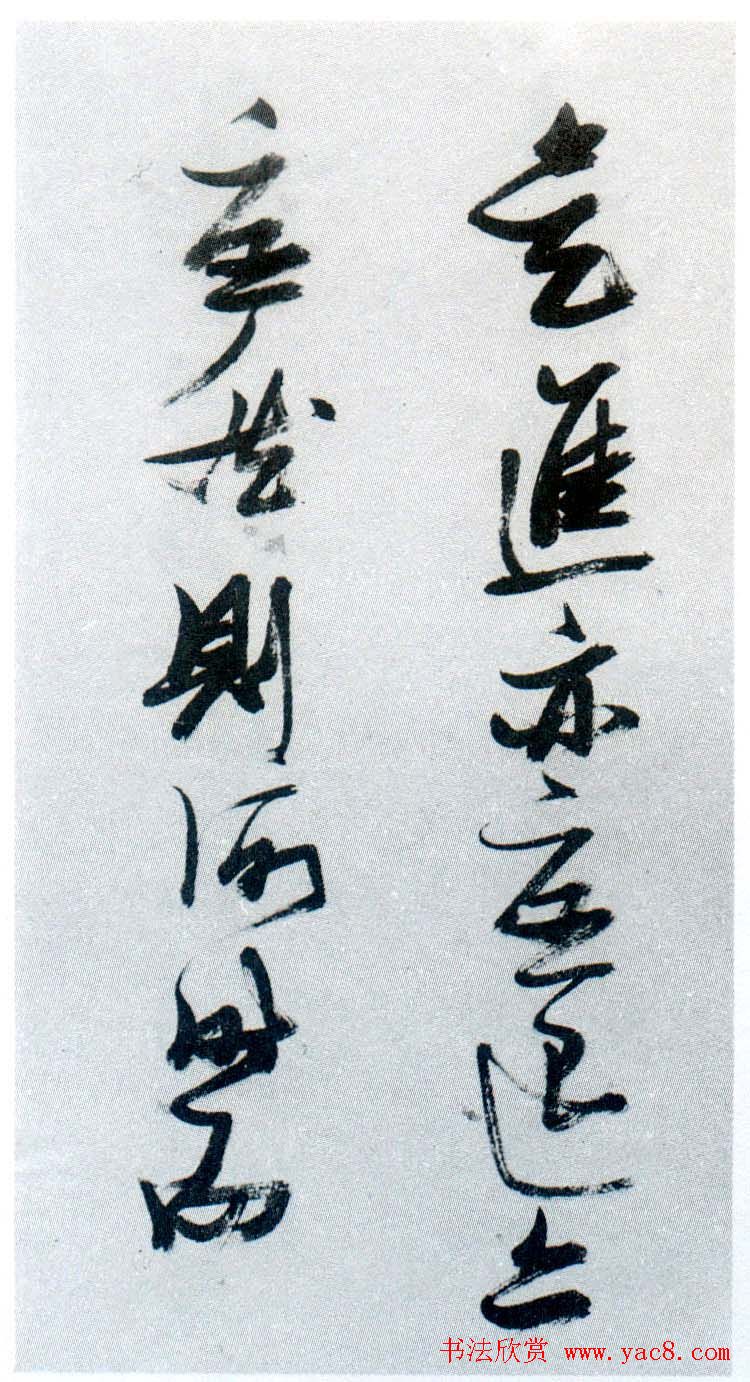 是進亦憂退亦
憂然則何時而
书法欣赏 www.yac8.com